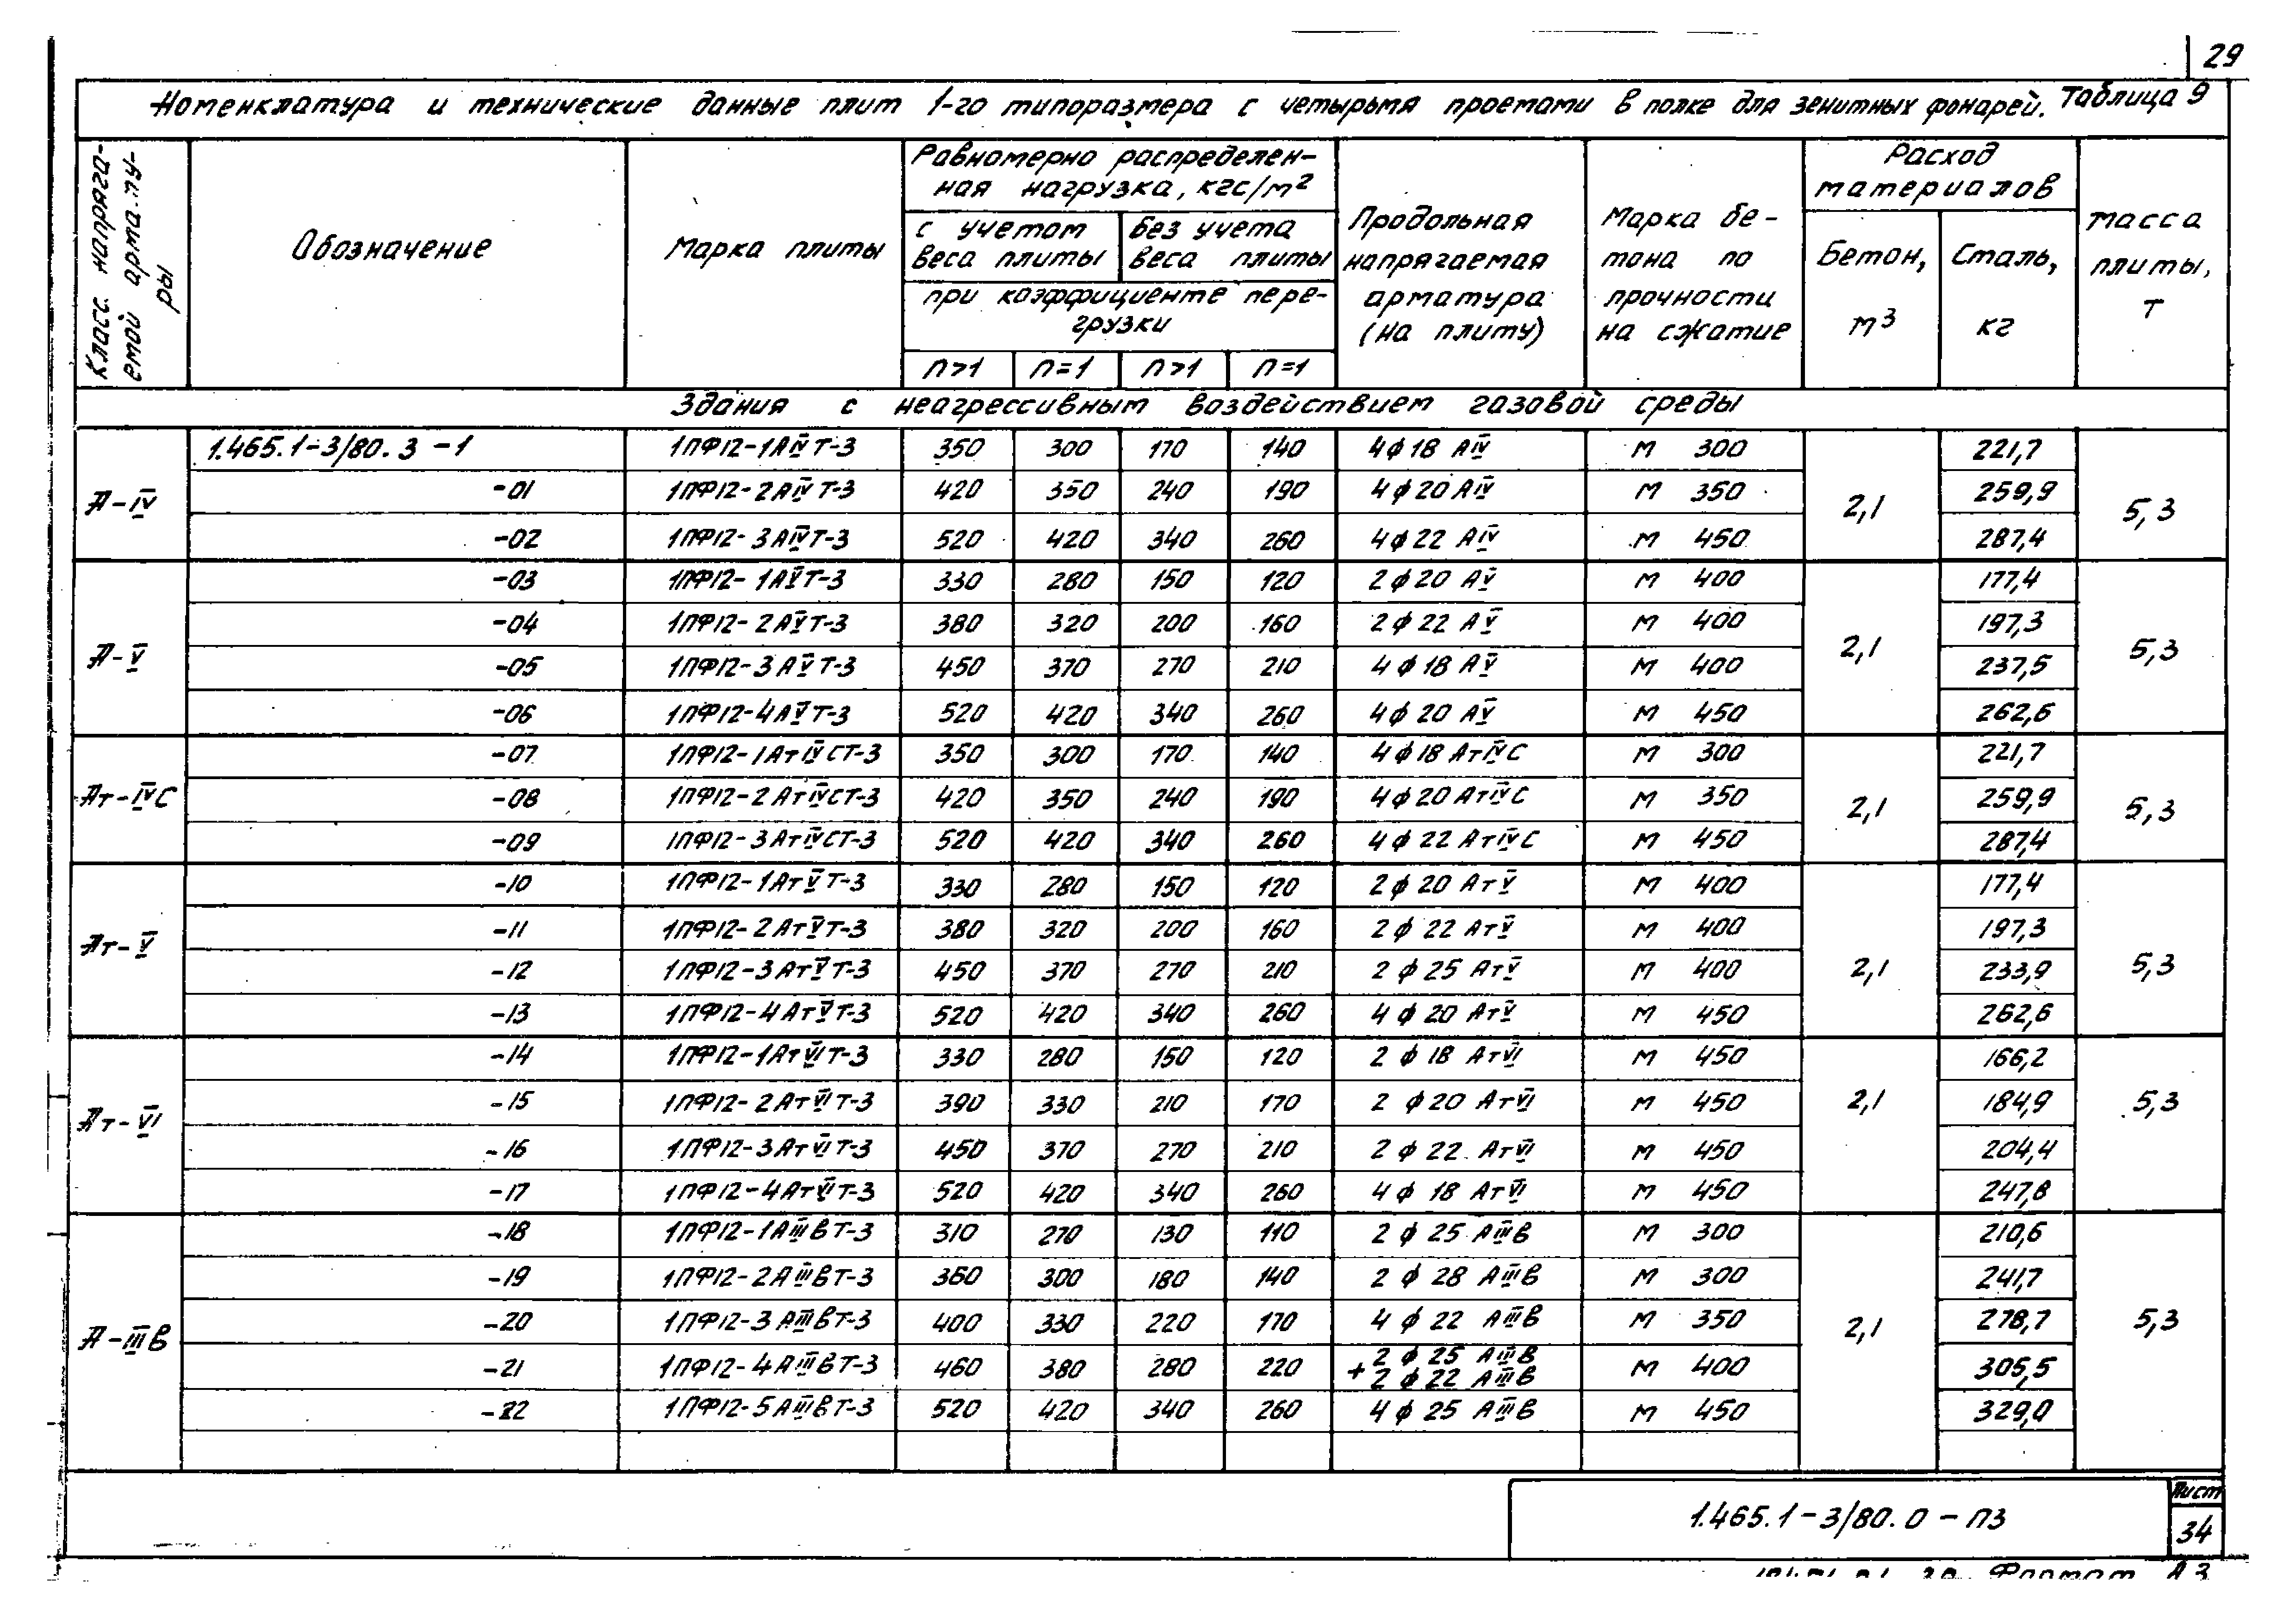 29
Номенклатура и технические данные плит 1-го типоразмера с четырьмя проемами в полке для зенитных фонарей. Таблица 9
Класс напряга-
емой арма..ту-
ры
Обозначение
Марка плиты
Равномерно распределен-
ная нагрузка, кгс/м²
с учетом
веса плиты
без учета
веса плиты
при коэффициенте пере-
грузки
n>1 n=1 n>1 n=1
Продольная
напрягаемая
арматура
(на плиту)
Марка бе-
тона по
прочности
на сжатие
Расход
материалов
Бетон,
м³
Сталь,
кг
масса
плиты,
т
Здания с неагрессивным воздействием газовой среды
А-IV 2,1 5,3
1.465.1-3/80.3 -1 1ПФ12-1АIVТ-3 350 300 170 140 4ϕ18 АIV М 300 221,7
-01 1ПФ12-2АIVТ-3 420 350 240 190 4ϕ20 АIV М 350 259,9
-02 1ПФ12-3АIVТ-3 520 420 340 260 4ϕ22 АIV М 450 287,4
А-V 2,1 5,3
-03 1ПФ12-1АVТ-3 330 280 150 120 2ϕ20 АV М 400 177,4
-04 1ПФ12-2АVТ-3 380 320 200 160 2ϕ22 АV М 400 197,3
-05 1ПФ12-3АVТ-3 450 370 270 210 4ϕ18 АV М 400 237,5
-06 1ПФ12-4АVТ-3 520 420 340 260 4ϕ20 АV М 450 262,6
Ат-IVС 2,1 5,3
-07 1ПФ12-1АтIVСТ-3 350 300 170 140 4ϕ18 АтIVС М 300 221,7
-08 1ПФ12-2АтIVСТ-3 420 350 240 190 4ϕ20 АтIVС М 350 259,9
-09 1ПФ12-3АтIVСТ-3 520 420 340 260 4ϕ22 АтIVС М 450 287,4
Ат-V 2,1 5,3
-10 1ПФ12-1АтVТ-3 330 280 150 120 2ϕ20 АтV М 400 177,4
-11 1ПФ12-2АтVТ-3 380 320 200 160 2ϕ22 АтV М 400 197,3
-12 1ПФ12-3АтVТ-3 450 370 270 210 2ϕ25 АтV М 400 233,9
-13 1ПФ12-4АтVТ-3 520 420 340 260 4ϕ20 АтV М 450 262,6
Ат-VI 2,1 5,3
-14 1ПФ12-1АтVIТ-3 330 280 150 120 2ϕ18 АтVI М 450 166,2
-15 1ПФ12-2АтVIТ-3 390 330 210 170 2ϕ20 АтVI М 450 184,9
-16 1ПФ12-3АтVIТ-3 450 370 270 210 2ϕ22 АтVI М 450 204,4
-17 1ПФ12-4АтVIТ-3 520 420 340 260 4ϕ18 АтVI М 450 247,8
А-IIIВ 2,1 5,3
-18 1ПФ12-1АIIIВТ-3 310 270 130 110 2ϕ25 АIIIВ М 300 210,6
-19 1ПФ12-2АIIIВТ-3 360 300 180 140 2ϕ28 АIIIВ М 300 241,7
-20 1ПФ12-3АIIIВТ-3 400 330 220 170 4ϕ22 АIIIВ М 350 278,7
-21 1ПФ12-4АIIIВТ-3 460 380 280 220 2ϕ25 АIIIВ + 2ϕ22 АIIIВ М 400 305,5
-22 1ПФ12-5АIIIВТ-3 520 420 340 260 4ϕ25 АIIIВ М 450 329,0
1.465.1-3/80.0-ПЗ
Лист
34
Формат А3